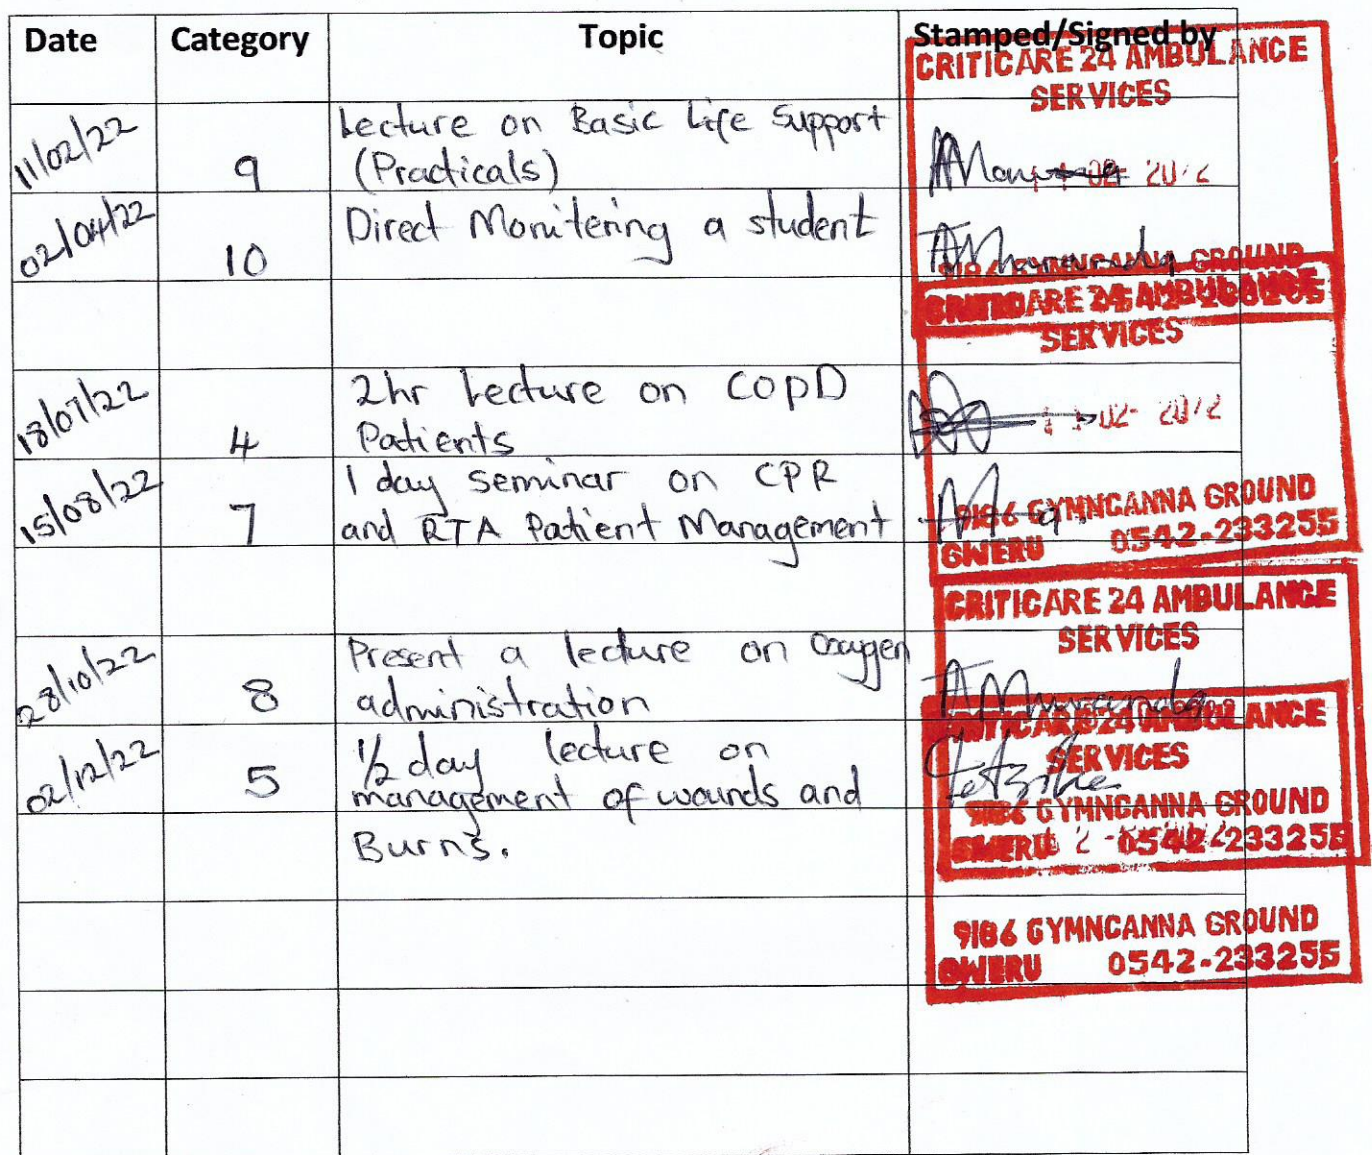 Date Category Topic Stamped/Signed by
CRITICARE 24 AMBULANCE
SERVICES
11/02/22 9 Lecture on Basic Life Support
(Practicals)
02/04/22 10 Direct Monitering a student
9186 GYMNCANNA GROUND
CRITICARE 24 AMBULANCE
SERVICES
18/07/22 4 2hr Lecture on COPD
Patients
15/08/22 7 1 day seminar on CPR
and RTA Patient Management
9186 GYMNCANNA GROUND
GWERU 0542-233255
CRITICARE 24 AMBULANCE
SERVICES
28/10/22 8 Present a lecture on Oxygen
administration
AMuranda
CRITICARE 24 AMBULANCE
SERVICES
02/12/22 5 1/2 day lecture on
management of wounds and
Burns.
9186 GYMNCANNA GROUND
GWERU 0542-233255
9186 GYMNCANNA GROUND
GWERU 0542-233255